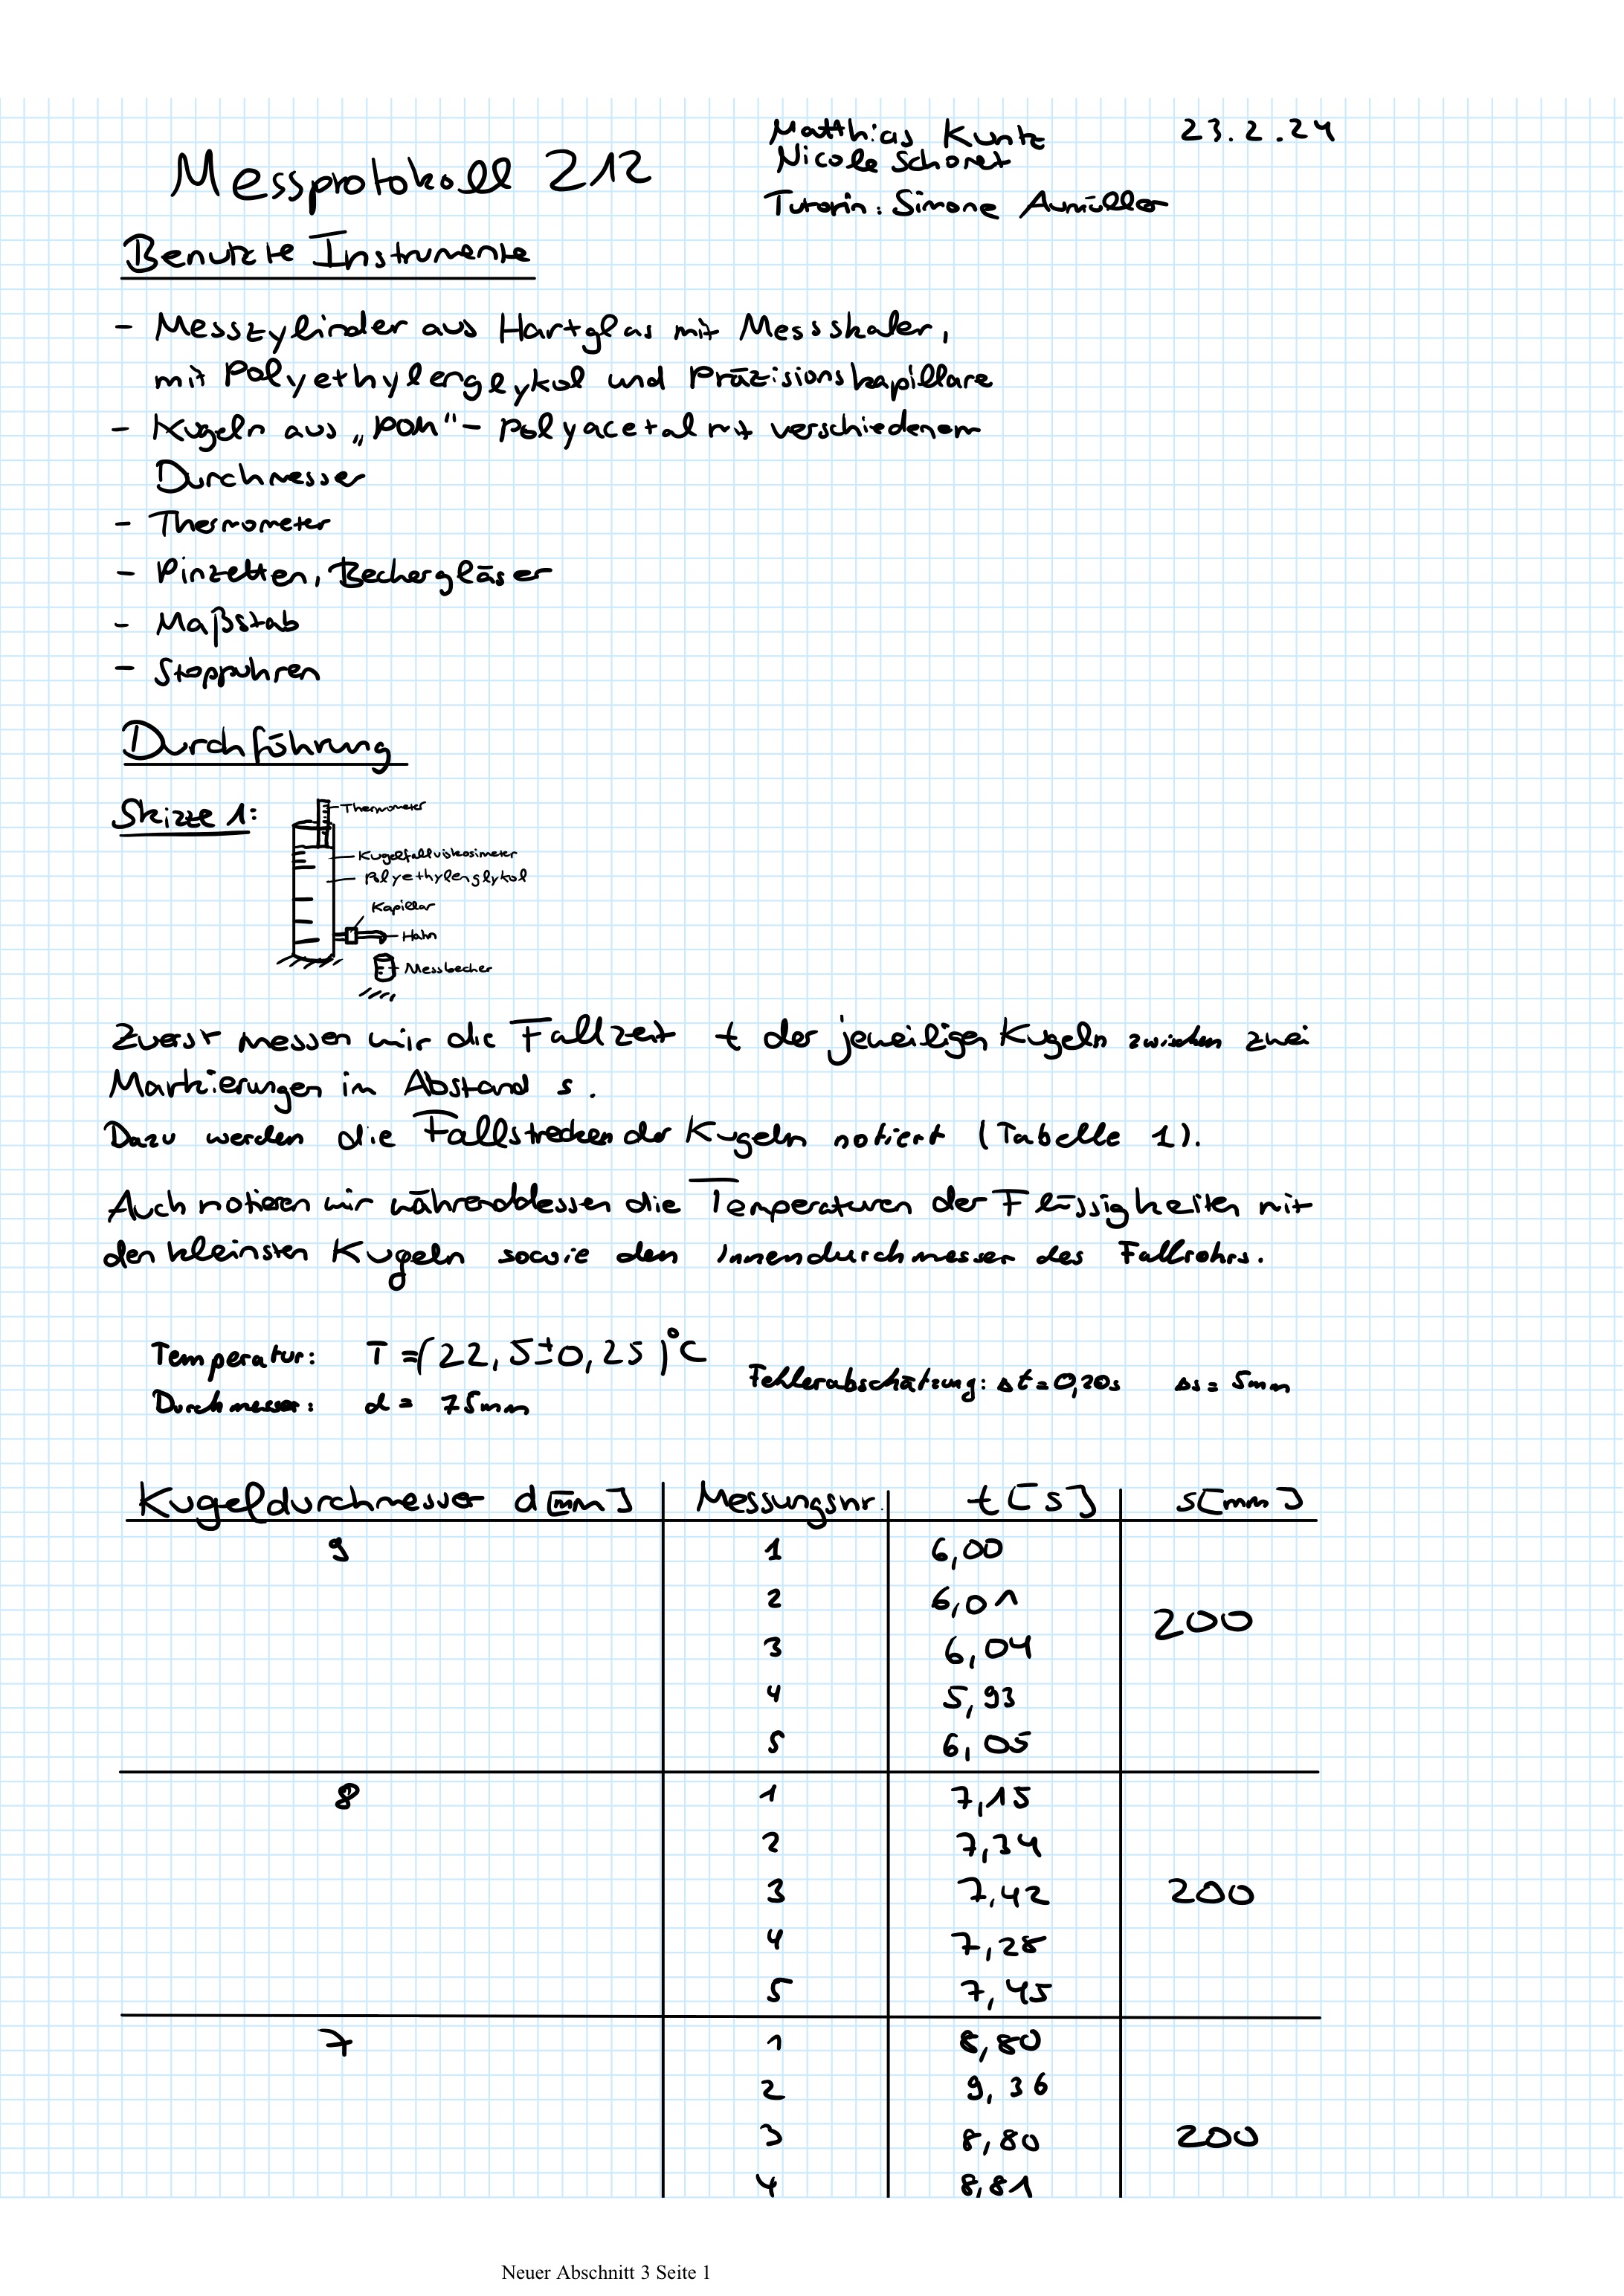 Messprotokoll 212
Matthias Kuntz
23.2.24
Nicole Schoret
Tutorin: Simone Aumüller
Benutzte Instrumente
- Messzylinder aus Hartglas mit Messskalen,
mit Polyethylenglykol und Präzisionskapillare
- Kugeln aus „POM“ - Polyacetal mit verschiedenem
Durchmesser
- Thermometer
- Pinzetten, Bechergläser
- Maßstab
- Stoppuhren
Durchführung
Skizze 1:
Thermometer
Kugelfallviskosimeter
Polyethylenglykol
Kapillar
Hahn
Messbecher
Zuerst messen wir die Fallzeit t der jeweiligen Kugeln zwischen zwei
Markierungen im Abstand s.
Dazu werden die Fallstrecken der Kugeln notiert (Tabelle 1).
Auch notieren wir währenddessen die Temperaturen der Flüssigkeiten mit
den kleinsten Kugeln sowie den Innendurchmesser des Fallrohrs.
Temperatur: T = (22,5±0,25)°C
Fehlerabschätzung: Δt=0,20s Δs= 5mm
Durchmesser: d = 75mm
Kugeldurchmesser d[mm] Messungsnr. t[s] s[mm]
9 1 6,00
2 6,01
200
3 6,04
4 5,93
5 6,05
8 1 7,15
2 7,34
3 7,42 200
4 7,28
5 7,45
7 1 8,80
2 9,36
3 8,80 200
4 8,81
Neuer Abschnitt 3 Seite 1